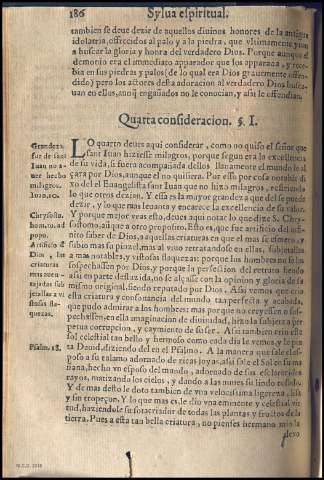 186
Sylua espiritual.
tambien se deue dezir de aquellos diuinos honores de la antigua
idolatria, offrecidos al palo y a la piedra, que vltimamente yuan
a buscar la gloria y honra del verdadero Dios. Porque aunque el
demonio era el immediato apparador que los apparaua, y rece-
bia en sus piedras y palos (de lo qual era Dios grauemente offen-
dido) pero los actores de la adoracion al verdadero Dios busca-
uan en ellos, aunque engañados no le conocian, y assi le offendian.
Quarta consideracion. §. I.
Grandeza
fue de sant
Iuan no a-
uer hecho
milagros.
Ioan. 10.
LO quarto deues aqui considerar, como no quiso el señor que
sant Iuan hiziesse milagros, porque segun era la excellencia
de su vida, si fuera acompañada dellos, llanamente el mundo lo al
çara por Dios, aunque el no quisiera. Por esso por cosa notable di
xo del el Euangelista sant Iuan que no hizo milagros, refiriendo
lo que otros dezian. Y essa es la mayor grandeza que del se puede
dezir, y lo que mas leuanta y encarece la excellencia de su valor.
Chrysosto.
hom. 10. ad
popu.
Y porque mejor veas esto, deues aqui notar lo que dize S. Chry-
sostomo, aunque a otro proposito. Esto es, que fue artificio del infi-
Artificio de
Dios, las
criaturas
mas auen-
tajadas sub
jetallas a vi
stosas fla-
quezas.
nito saber de Dios, a aquellas criaturas en que el mas se esmero, y
subio mas su pinzel, mas al viuo retratandose en ellas, subjetallas
a mas notables, y vistosas flaquezas: porque los hombres no las
sospechassen por Dios, y porque la perfeccion del retrato siendo
assi en parte desluzida, no se alçasse con la opinion y gloria de su
mismo original, siendo reputado por Dios. Assi vemos que cria
esta criatura y consonancia del mundo tan perfecta y acabada,
que pudo admirar a los hombres: mas porque no creyessen o sos-
pechassen, en ella imaginacion de diuinidad, hizola subjeta a per-
petua corrupcion, y caymiento de su ser. Assi tambien crio este
sol celestial tan bello y hermoso como cada dia le vemos, y le pin
Psalm. 18.
ta Dauid, diziendo del en el Psalmo. A la manera que sale el es-
poso a su talamo adornado de ricas joyas, assi sale el Sol de su ma
ñana, hecho vn esposo del mundo, adornado de sus esclarecidos
rayos, matizando los cielos, y dando a las nuues su lindo rosicler.
Y de mas desto le doto tambien de vna velocissima ligereza, sin
y sin tropeçon. Y lo que mas es, le dio vna eminente y celestial vir
tud, haziendole sustentador de todas las plantas y fructos de la
tierra. Pues a esta tan bella criatura, no pienses hermano mio la
dexo